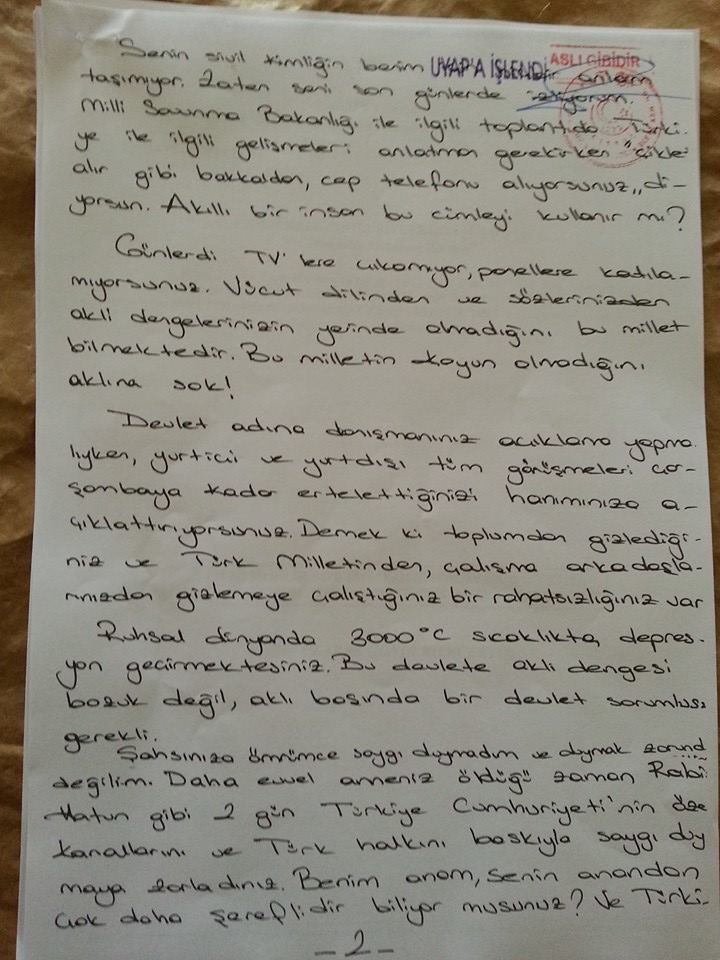 Senin sivil kimliğin benim UYAP'A İŞLENDİ ASLI GİBİDİR anlam
taşımıyor. Zaten seni son günlerde izliyorum.
Milli Savunma Bakanlığı ile ilgili toplantıda Türki-
ye ile ilgili gelişmeleri anlatman gerekirken "çiklet
alır gibi bakkaldan, cep telefonu alıyorsunuz,, di-
yorsun. Akıllı bir insan bu cümleyi kullanır mı?
Günlerdi TV'lere çıkamıyor, panellere katıla-
mıyorsunuz. Vücut dilinden ve sözlerinizden
akli dengelerinizin yerinde olmadığını bu millet
bilmektedir. Bu milletin koyun olmadığını
aklına sok!
Devlet adına danışmanınız açıklama yapma
lıyken, yurtiçi ve yurtdışı tüm görüşmeleri çar-
şambaya kadar ertelettiğinizi hanımınıza a-
çıklattırıyorsunuz. Demek ki toplumdan gizlediği-
niz ve Türk Milletinden, çalışma arkadaşla-
rınızdan gizlemeye çalıştığınız bir rahatsızlığınız var
Ruhsal dünyanda 3000°C sıcaklıkta, depres-
yon geçirmektesiniz. Bu devlete akli dengesi
bozuk değil, aklı başında bir devlet sorumlusu
gerekli.
Şahsınıza ömrümce saygı duymadım ve duymak zorund
değilim. Daha evvel anneniz öldüğü zaman Rabi
Hatun gibi 2 gün Türkiye Cumhuriyeti'nin öze
kanallarını ve Türk halkını baskıyla saygı duy
maya zorladınız. Benim anam, senin anandan
çok daha şereflidir biliyor musunuz? Ve Türki-
-2-